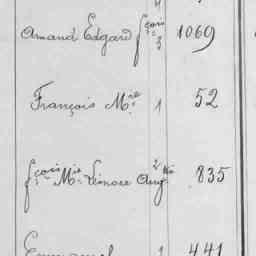 Amand Edgard fçois 3 1069
François Mie 1 52
fçois Mie Léinore Aug 2 835
Emmanuel 1 441